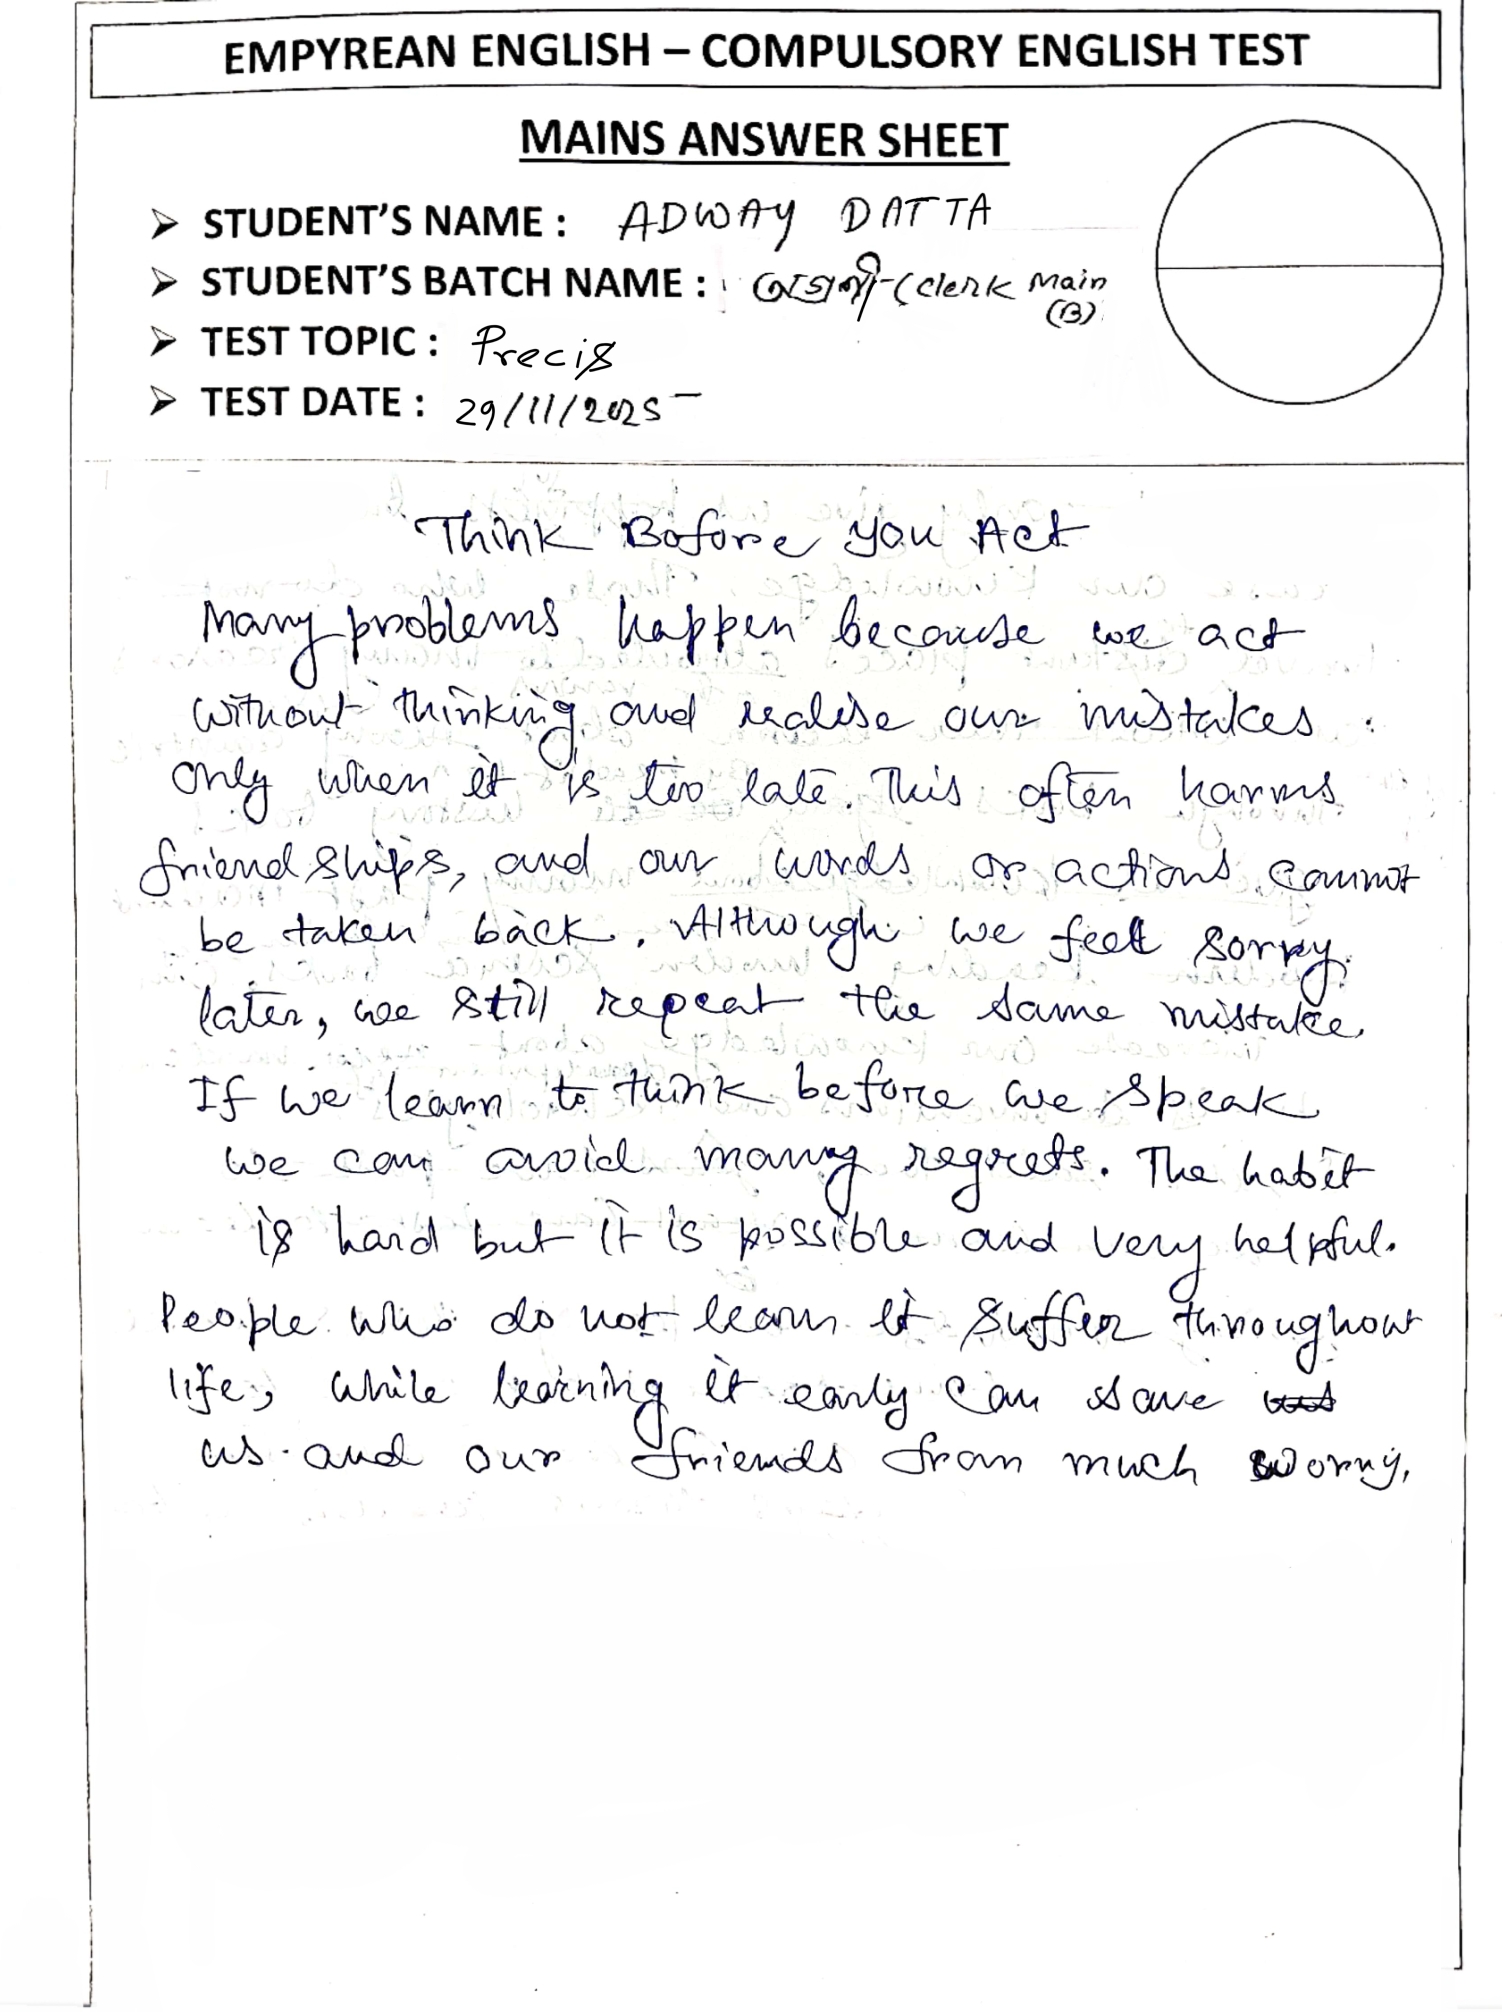 EMPYREAN ENGLISH – COMPULSORY ENGLISH TEST
MAINS ANSWER SHEET
➢ STUDENT'S NAME : ADWAY DATTA
➢ STUDENT'S BATCH NAME : -(Clerk Main
(B)
➢ TEST TOPIC : Precis
➢ TEST DATE : 29/11/2025
Think Before You Act
Many problems happen because we act
without thinking and realise our mistakes
only when it is too late. This often harms
friendships, and our words or actions cannot
be taken back. Although we feel sorry
later, we still repeat the same mistake.
If we learn to think before we speak
we can avoid many regrets. The habit
is hard but it is possible and very helpful.
People who do not learn it suffer throughout
life, while learning it early can save
us and our friends from much worry.